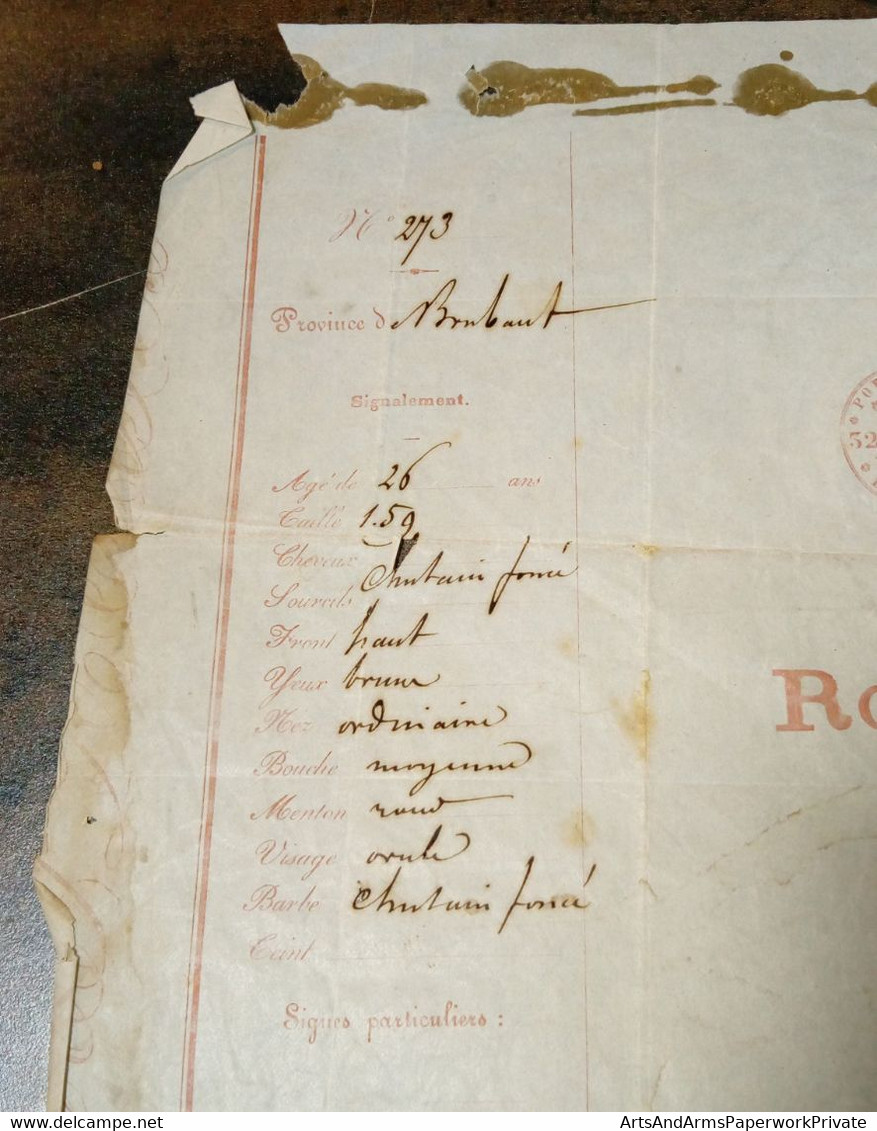 N° 273
Province d Brabant
Signalement.
Agé de 26 ans
Taille 1.59
Cheveux
Sourcils Chatain foncé
Front haut
Yeux bruns
Nez ordinaire
Bouche moyenne
Menton rond
Visage ovale
Barbe Chatain foncé
Teint
Signes particuliers :
PO
52
Ro
ArtsAndArmsPaperworkPrivate